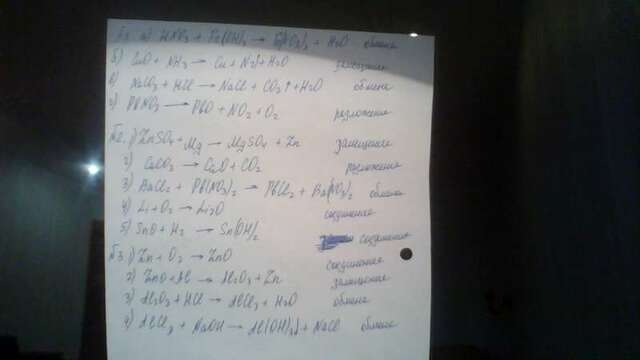 а) HNO₃ + Fe(OH)₃ → Fe(NO₃)₃ + H₂O обмена
б) CuO + NH₃ → Cu + N₂↑ + H₂O замещение
в) NaCO₃ + HCl → NaCl + CO₂↑ + H₂O обмена
г) PbNO₃ → PbO + NO₂ + O₂ разложение
№2. 1) ZnSO₄ + Mg → MgSO₄ + Zn замещение
2) CaCO₃ → CaO + CO₂ разложение
3) BaCl₂ + Pb(NO₃)₂ → PbCl₂ + Ba(NO₃)₂ обмена
4) Li + O₂ → Li₂O соединение
5) SnO + H₂ → Sn(OH)₂ соединение
№3. 1) Zn + O₂ → ZnO соединение
2) ZnO + Al → Al₂O₃ + Zn замещение
3) Al₂O₃ + HCl → AlCl₃ + H₂O обмена
4) AlCl₃ + NaOH → Al(OH)₃↓ + NaCl обмена